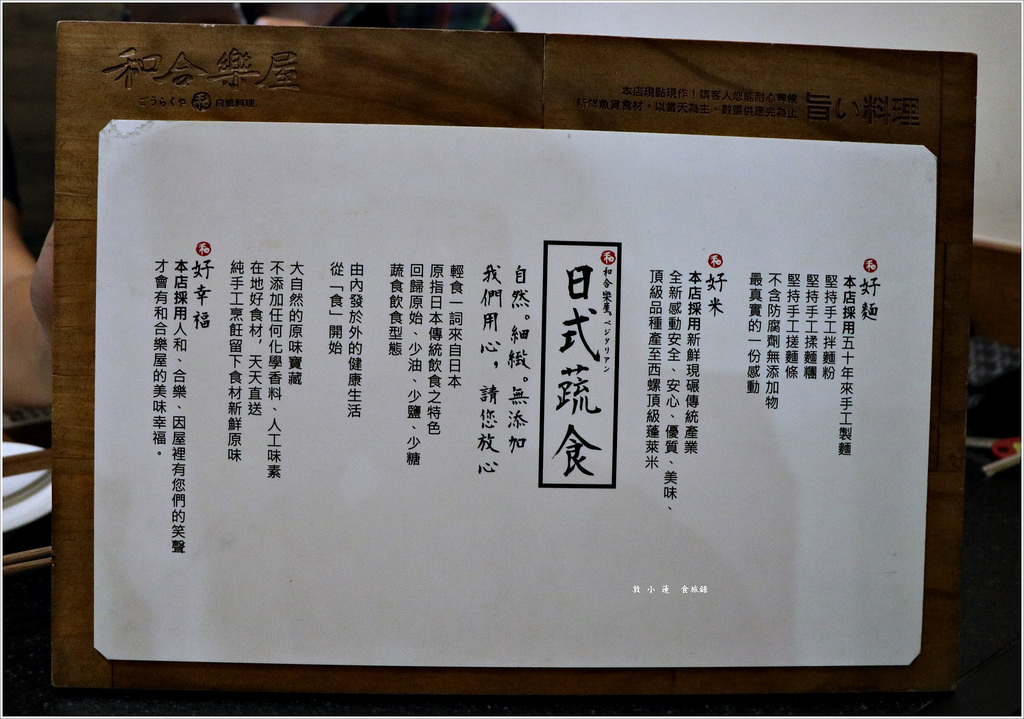 和合樂屋
ごうらくや 和 自慢料理
本店現點現作！請客人您能耐心等候
所有魚貨食材，以當天為主，數量供應完為止
旨い料理
和 好麵
本店採用五十年來手工製麵
堅持手工拌麵粉
堅持手工揉麵糰
堅持手工搓麵條
不含防腐劑無添加物
最真實的一份感動
和 好米
本店採用新鮮現碾傳統產業
全新感動安全、安心、優質、美味、
頂級品種產至西螺頂級蓬萊米
和 和合樂屋。ベジタリアン
日式蔬食
自然。細緻。無添加
我們用心，請您放心
輕食一詞來自日本
原指日本傳統飲食之特色
回歸原始、少油、少鹽、少糖
蔬食飲食型態
由內發於外的健康生活
從「食」開始
大自然的原味寶藏
不添加任何化學香料、人工味素
在地好食材，天天直送
純手工烹飪留下食材新鮮原味
和 好幸福
本店採用人和、合樂、因屋裡有您們的笑聲
才會有和合樂屋的美味幸福。
敦小蓮 食旅錄